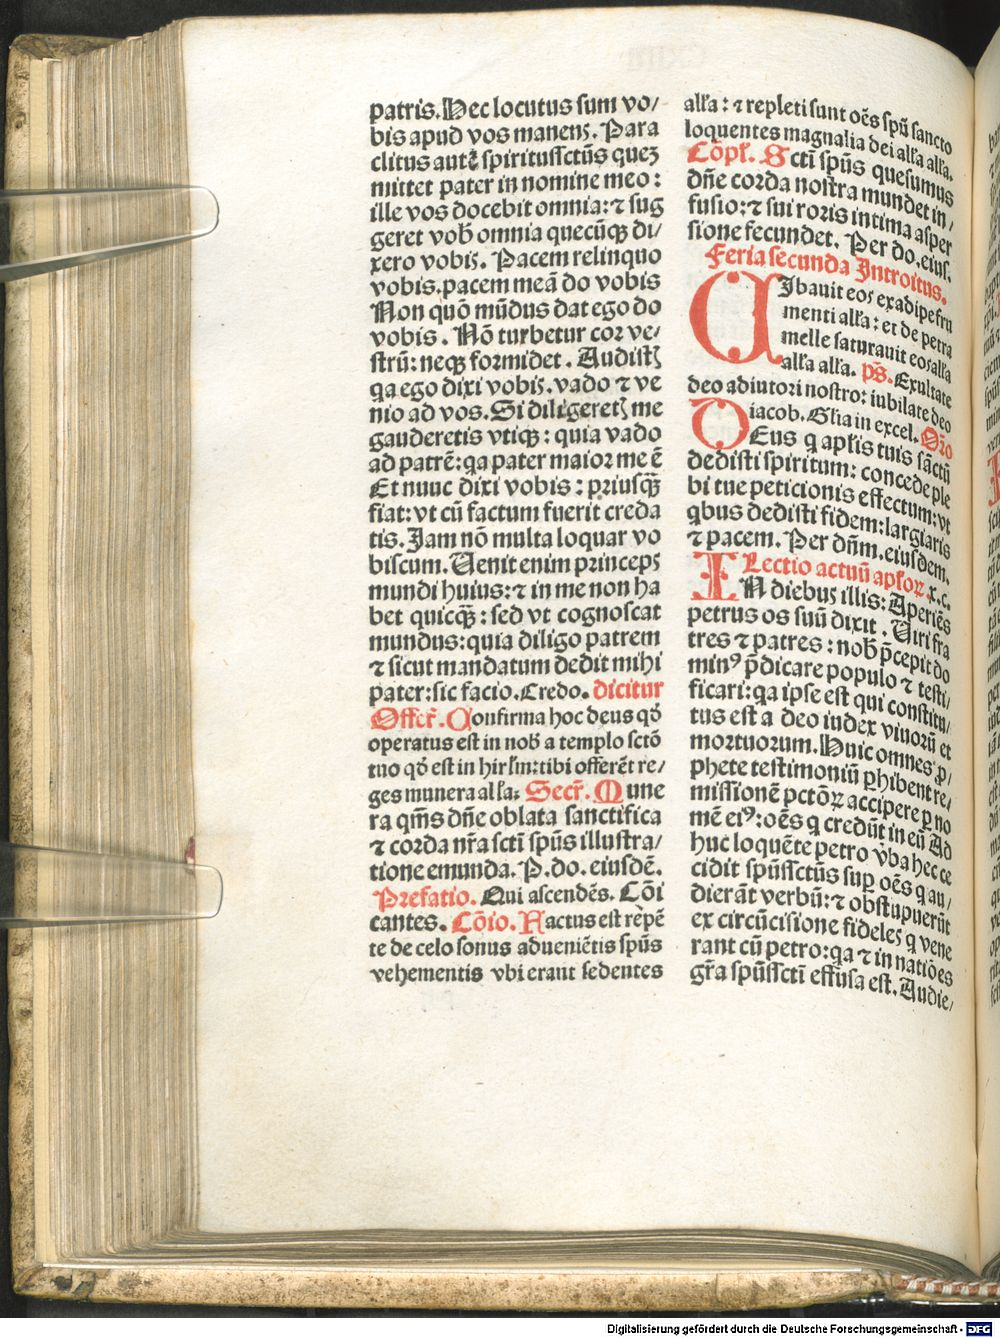 patris. Hec locutus sum vo/
bis apud vos manens. Para
clitus autē spiritussctūs quez
mittet pater in nomine meo:
ille vos docebit omnia: ⁊ sug
geret vob̄ omnia quecūqꝫ di/
xero vobis. Pacem relinquo
vobis. pacem meā do vobis
Non quō mūdus dat ego do
vobis. Nō turbetur cor ve/
strū: neqꝫ formidet. Audistꝭ
qa ego dixi vobis. vado ⁊ ve
nio ad vos. Si diligeretꝭ me
gauderetis vtiqꝫ: quia vado
ad patrē: qa pater maior me ē
Et nunc dixi vobis: priusqꝫ
fiat: vt cū factum fuerit creda
tis. Jam nō multa loquar vo
biscum. Uenit enim princeps
mundi huius: ⁊ in me non ha
bet quicqꝫ: sed vt cognoscat
mundus: quia diligo patrem
⁊ sicut mandatum dedit mihi
pater: sic facio. Credo. dicitur
Offer̄. Confirma hoc deus qď
operatus est in nob̄ a templo sctō
tuo qď est in hirl̄m: tibi offerēt re/
ges munera all'a: Secr̄. Mune
ra qm̄s dn̄e oblata sanctifica
⁊ corda nr̄a sctī spūs illustra/
tione emunda. P. do. eiusdē.
Prefatio. Qui ascendēs. Cōi
cantes. Cōio. Factus est rēpē
te de celo sonus adueniētis spūs
vehementis vbi erant sedentes
all'a: ⁊ repleti sunt oēs spū sancto
loquentes magnalia dei all'a all'a.
Cōpl'. Sctī spūs quesumus
dn̄e corda nostra mundet in/
fusio: ⁊ sui roris intima asper
sione fecundet. Per do. eius.
Feria secunda Introitus.
Cibauit eos ex adipe fru
menti all'a: et de petra
melle saturauit eos all'a
all'a all'a. ps̄. Exultate
deo adiutori nostro: iubilate deo
iacob. Glia in excel. Oro
DEus q apl'is tuis sāctū
dedisti spiritum: concede ple
bi tue peticionis effectum: vt
qbus dedisti fidem: largiaris
⁊ pacem. Per dn̄m. eiusdem.
Lectio actuū apl'oꝝ x. c.
IN diebus illis: Aperiēs
petrus os suū dixit. Uiri fra
tres ⁊ patres: nob̄ p̄cepit do
minꝰ p̄dicare populo ⁊ testi/
ficari: qa ipse est qui constitu/
tus est a deo iudex viuorū et
mortuorum. Huic omnes ꝓ/
phete testimoniū ꝑhibent re/
missionē pctōꝝ accipere ꝑ no
mē eiꝰ: oēs q credūt in eū Ad
huc loquēte petro v̄ba hec ce
cidit spūssctūs suꝑ oēs q au/
dierāt verbū: ⁊ obstupuerūt
ex circūcisione fideles q vene
rant cū petro: qa ⁊ in natiōes
gr̄a spūssctī effusa est. Audie/
Digitalisierung gefördert durch die Deutsche Forschungsgemeinschaft - DFG